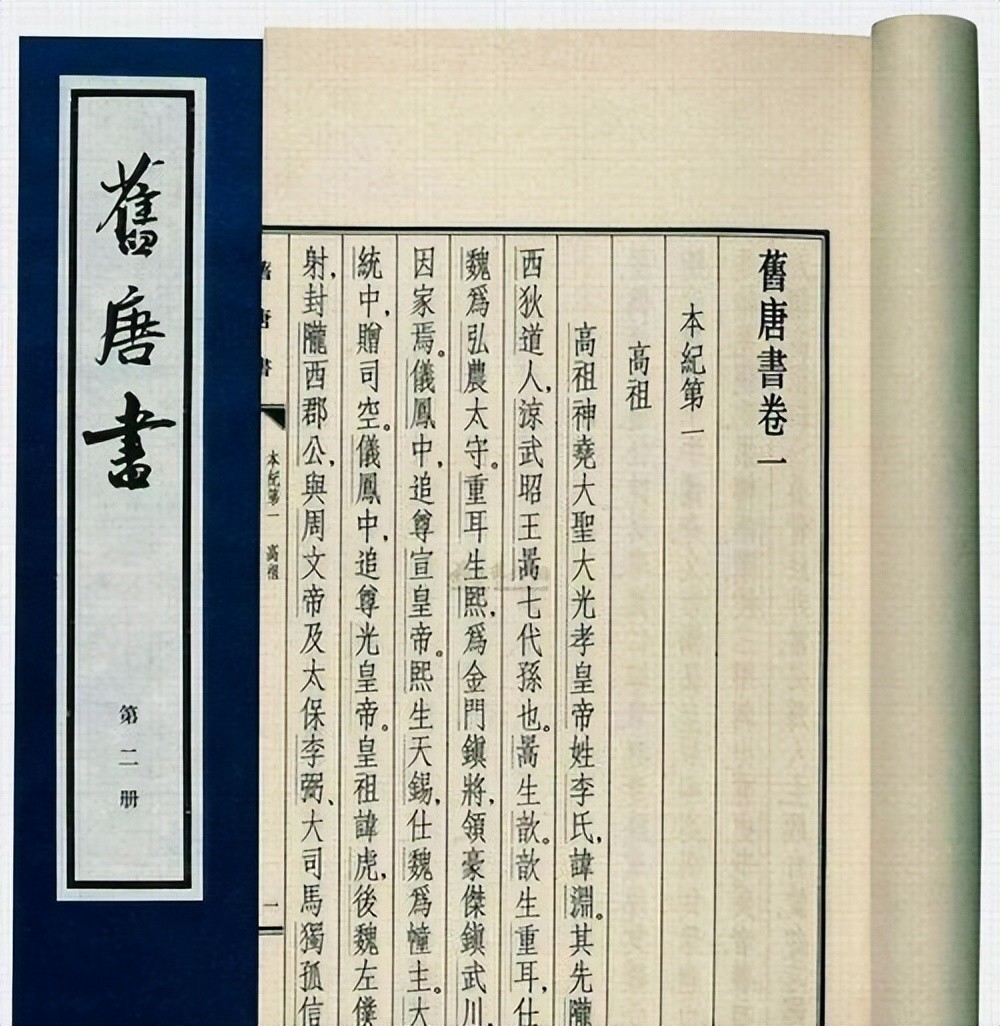 舊唐書
第二册
舊唐書卷一
本紀第一
高祖
高祖神堯大聖大光孝皇帝姓李氏，諱淵。其先隴
西狄道人，涼武昭王暠七代孫也。暠生歆。歆生重耳，仕
魏爲弘農太守。重耳生熙，爲金門鎮將，領豪傑鎮武川，
因家焉。儀鳳中，追尊宣皇帝。熙生天錫，仕魏爲幢主。大
統中，贈司空。儀鳳中，追尊光皇帝。皇祖諱虎，後魏左僕
射，封隴西郡公，與周文帝及太保李弼、大司馬獨孤信
舊唐書
本紀第一 高祖
一